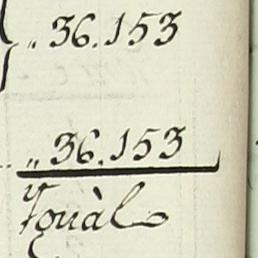 „ 36.153
„ 36.153